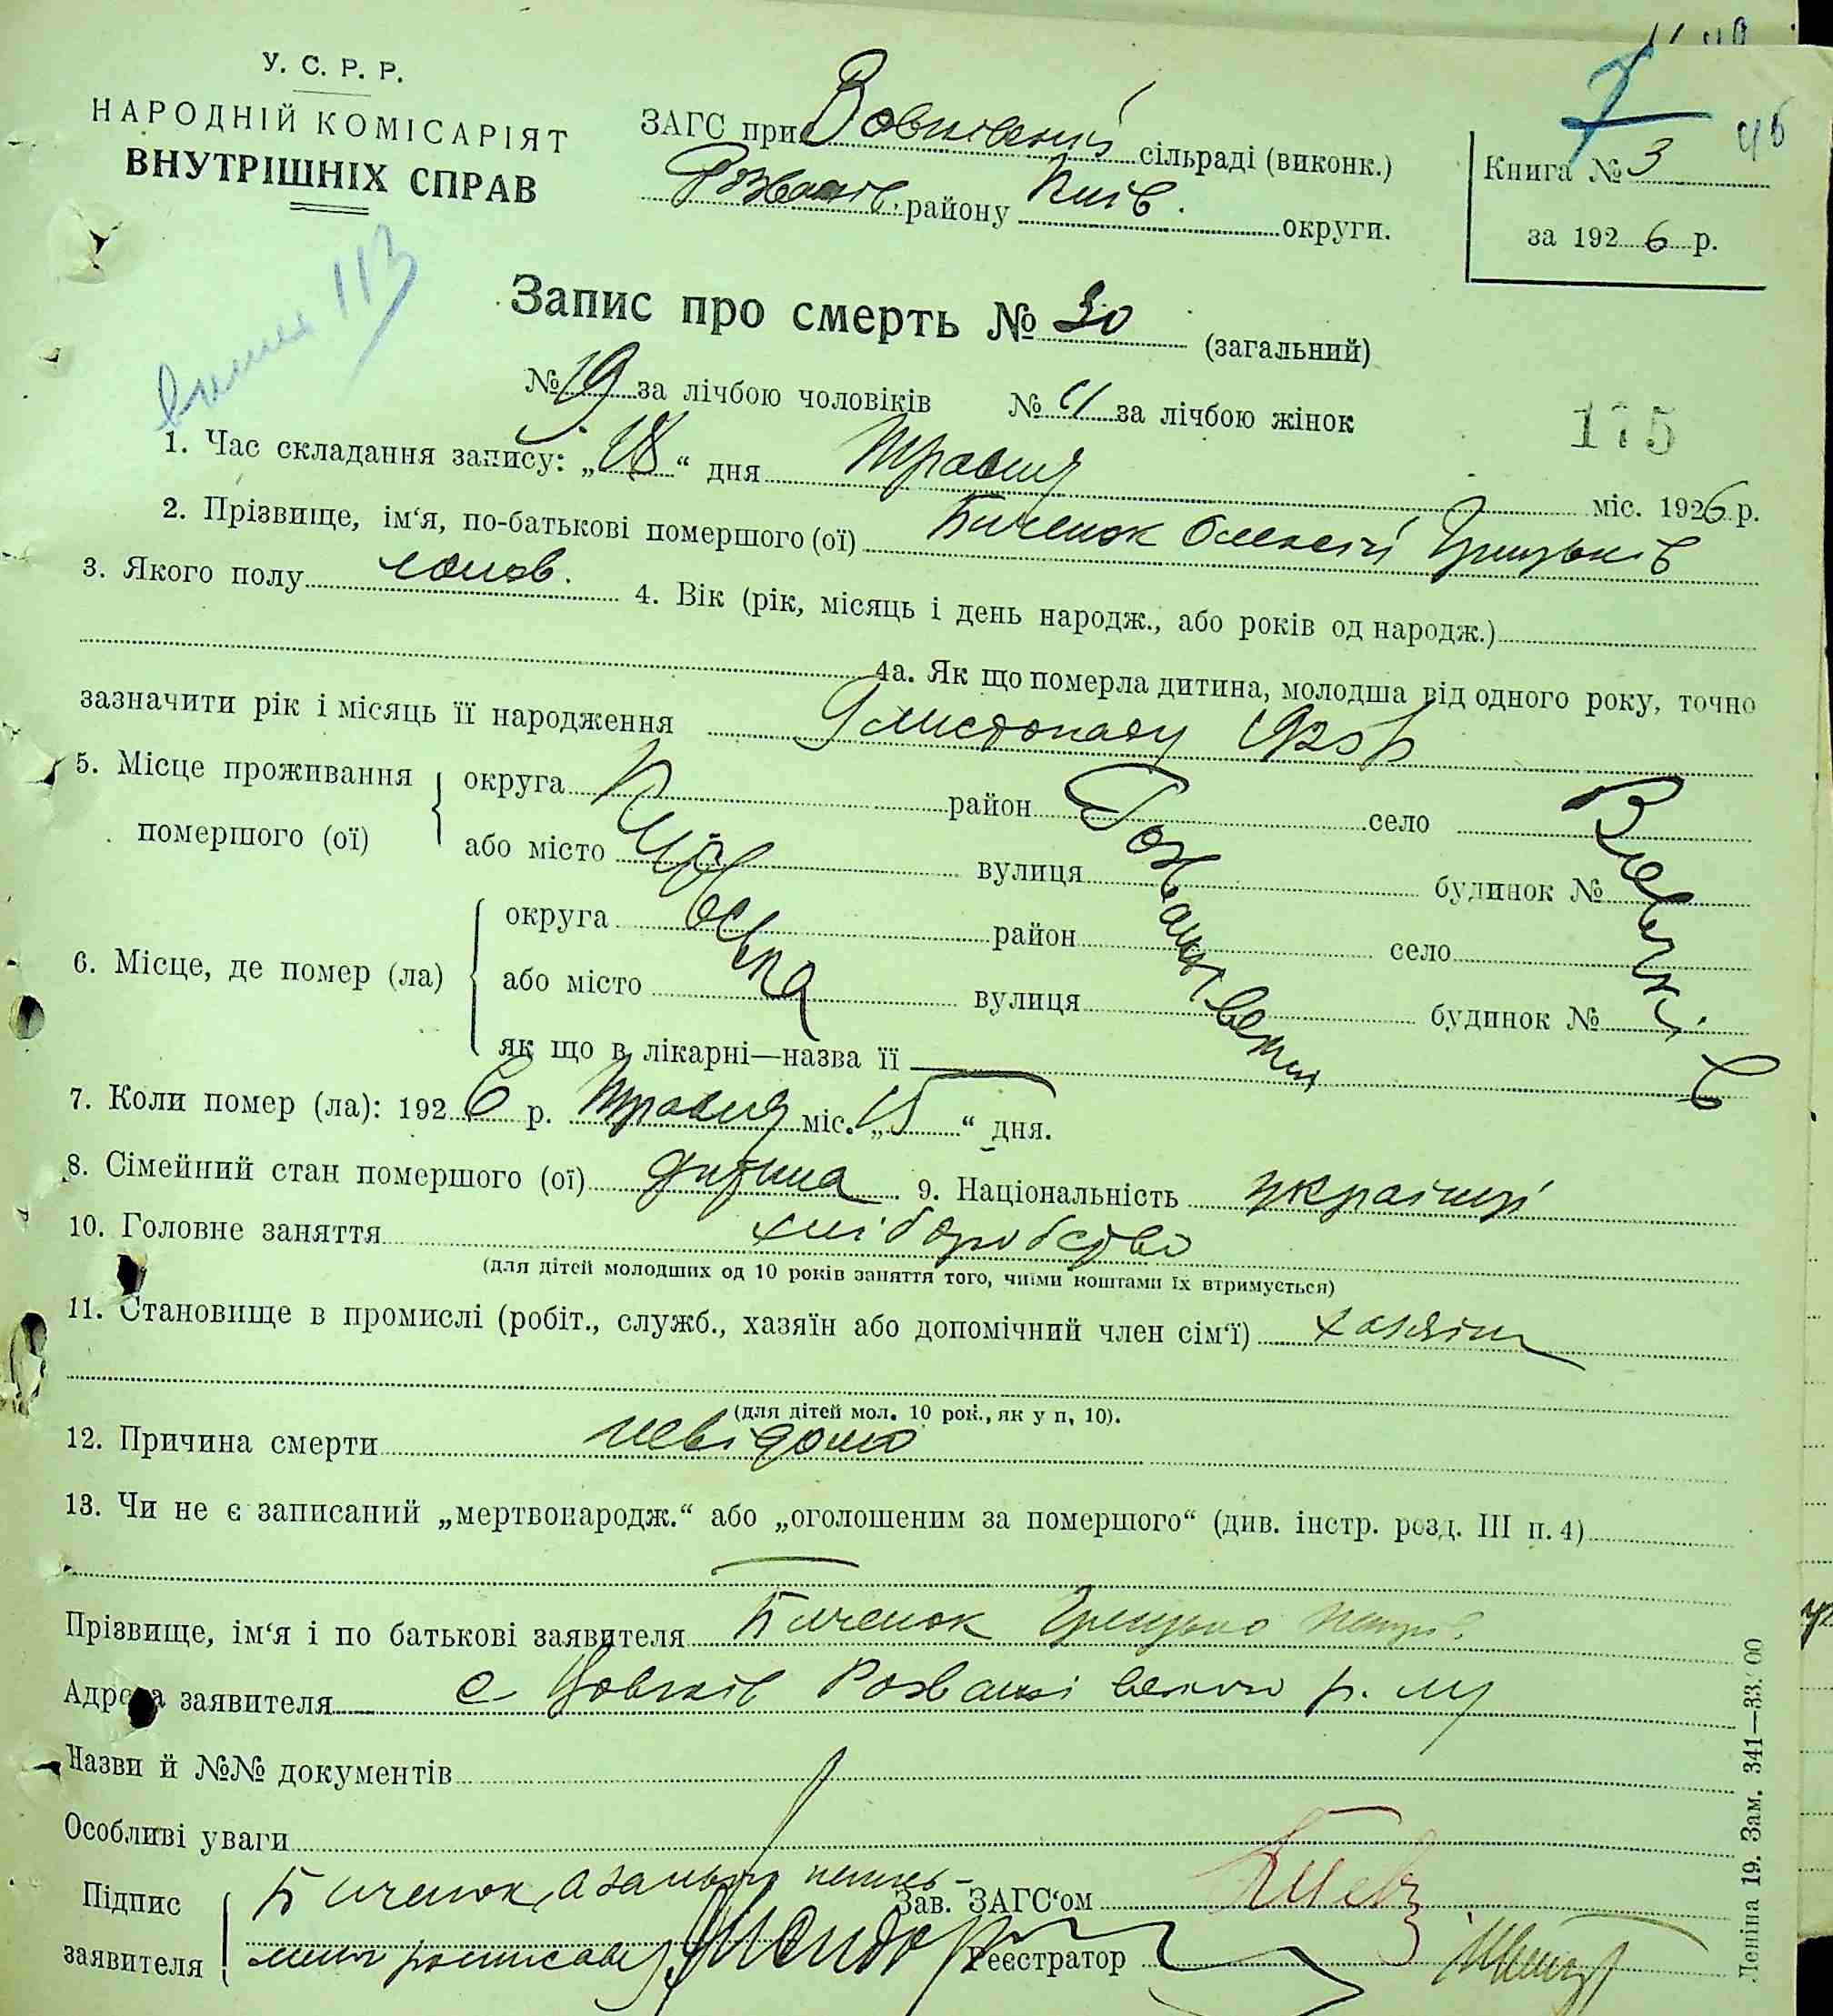 У. С. Р. Р.
НАРОДНІЙ КОМІСАРІЯТ
ВНУТРІШНІХ СПРАВ
ЗАГС при Вовківський сільраді (виконк.)
Розваж. району Київ. округи.
Книга № 3
за 1926 р.
46
113
Запис про смерть № 30 (загальний)
№ 19 за лічбою чоловіків № 11 за лічбою жінок
175
1. Час складання запису: „18“ дня Травня міс. 1926 р.
2. Прізвище, ім‘я, по-батькові помершого (ої) Биченок Олексій Грицьків
3. Якого полу чолов. 4. Вік (рік, місяць і день народж., або років од народж.)
4а. Як що померла дитина, молодша від одного року, точно
зазначити рік і місяць її народження 9 листопаду 1925 р
5. Місце проживання помершого (ої) округа Київська район Розважівський село
або місто вулиця будинок №
6. Місце, де помер (ла) округа район село
або місто вулиця будинок №
як що в лікарні—назва її
7. Коли помер (ла): 1926 р. Травня міс. „15“ дня.
8. Сімейний стан помершого (ої) дитина 9. Національність українці
10. Головне заняття хліборобство
(для дітей молодших од 10 років заняття того, чиїми коштами їх втримується)
11. Становище в промислі (робіт., служб., хазяїн або допомічний член сім‘ї) хазяїн
(для дітей мол. 10 рок., як у п, 10).
12. Причина смерти невідомо
13. Чи не є записаний „мертвонародж.“ або „оголошеним за помершого“ (див. інстр. розд. III п. 4)
Прізвище, ім‘я і по батькові заявителя Биченок Грицько
Адреса заявителя с
Назви й №№ документів
Особливі уваги
Підпис заявителя Биченок, а за нього непись-
менн росписався
Зав. ЗАГС‘ом
Реєстратор
Леніна 19. Зам. 341—33.000